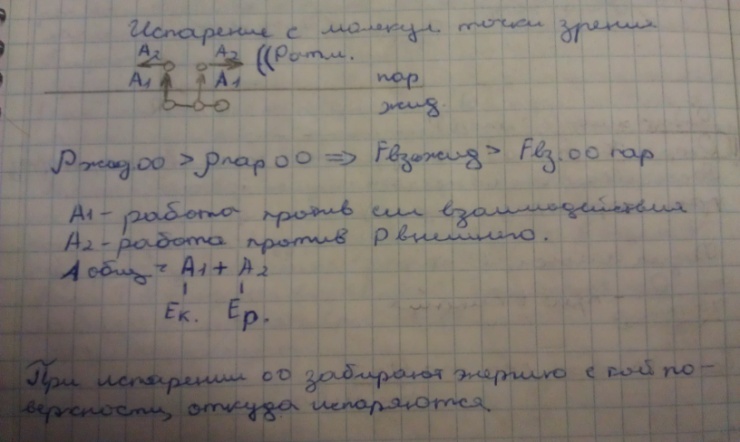 Испарение с молекул. точки зрения
A2 A2 ((Pатм.
A1 A1 пар
жид.
ρжид.oo > ρпар oo => Fвзожид > Fвз.oo пар
A1 - работа против сил взаимодействия
A2 - работа против P внешнего.
Aобщ = A1 + A2
Eк. Eр.
При испарении oo забирают энергию с той по-
верхности, откуда испаряются.